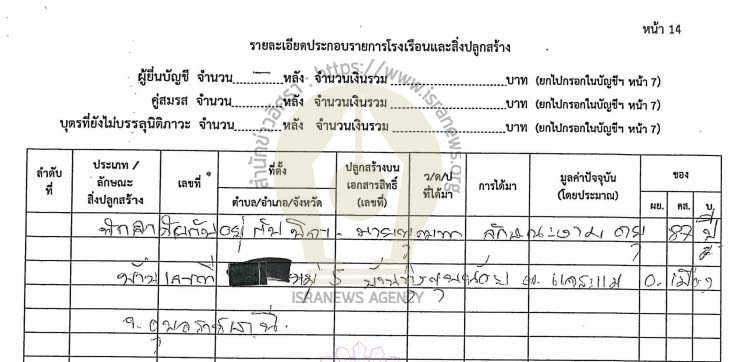 หน้า 14
รายละเอียดประกอบรายการโรงเรือนและสิ่งปลูกสร้าง
ผู้ยื่นบัญชี จำนวน............หลัง จำนวนเงินรวม ............................บาท (ยกไปกรอกในบัญชีฯ หน้า 7)
คู่สมรส จำนวน............หลัง จำนวนเงินรวม ............................บาท (ยกไปกรอกในบัญชีฯ หน้า 7)
บุตรที่ยังไม่บรรลุนิติภาวะ จำนวน............หลัง จำนวนเงินรวม ............................บาท (ยกไปกรอกในบัญชีฯ หน้า 7)
สำนักข่าวอิศรา : https://www.isranews.org
ลำดับที่ ประเภท / ลักษณะสิ่งปลูกสร้าง เลขที่ * ที่ตั้ง ตำบล/อำเภอ/จังหวัด ปลูกสร้างบนเอกสารสิทธิ์ (เลขที่) ว/ด/ป ที่ได้มา การได้มา มูลค่าปัจจุบัน (โดยประมาณ) ของ ผย. คส. บ.
พักอาศัยกับอยู่กับบิดา - นาย 87 ปี
บ้านเลขที่ หมู่ 5 ต. แจระแม อ. เมือง
จ. อุบลราชธานี.
ISRANEWS AGENCY